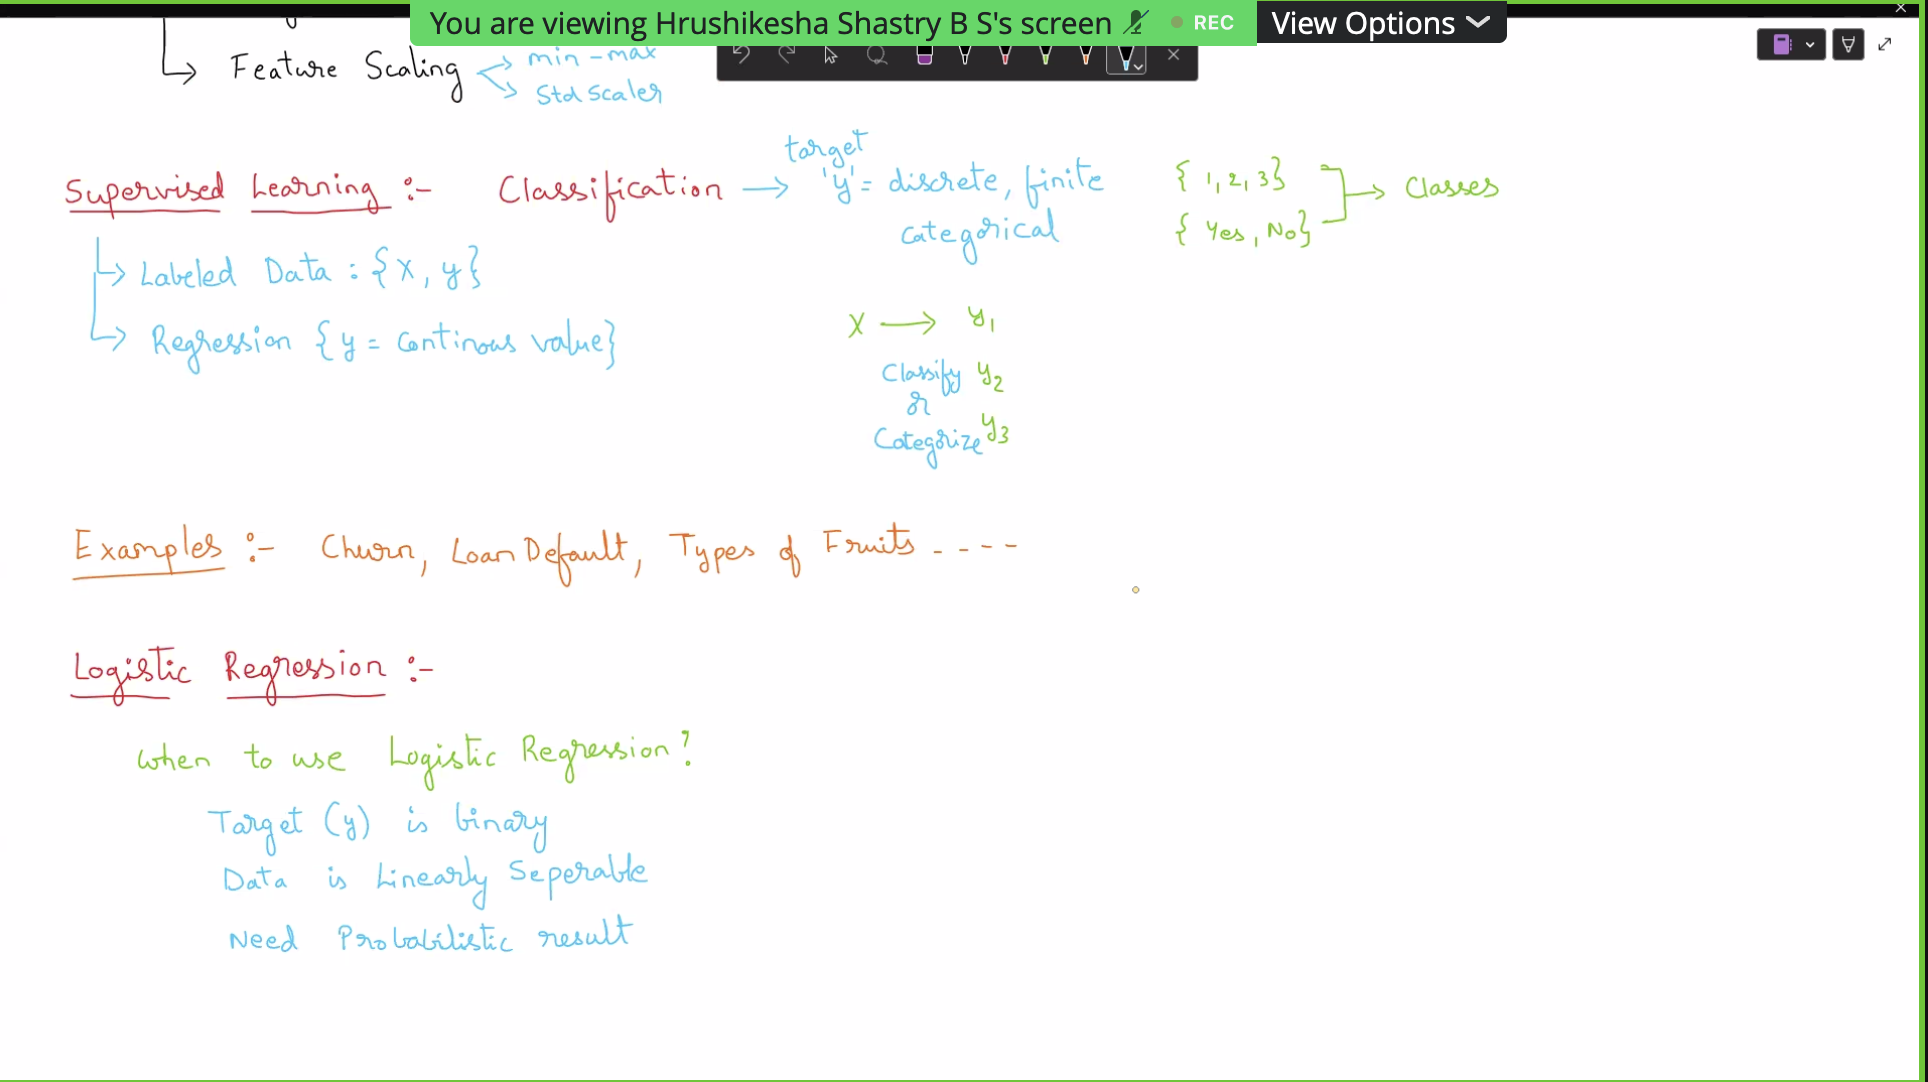 You are viewing Hrushikesha Shastry B S's screen REC View Options
Feature Scaling
min-max
Std Scaler
Supervised Learning :- Classification → target 'y' = discrete, finite categorical
{ 1, 2, 3}
{ Yes, No}
→ Classes
Labeled Data : {X, y}
Regression {y = Continous value}
X → y1
Classify y2
or
Categorize y3
Examples :- Churn, Loan Default, Types of Fruits - - - -
Logistic Regression :-
When to use Logistic Regression?
Target (y) is binary
Data is Linearly Seperable
Need Probabilistic result